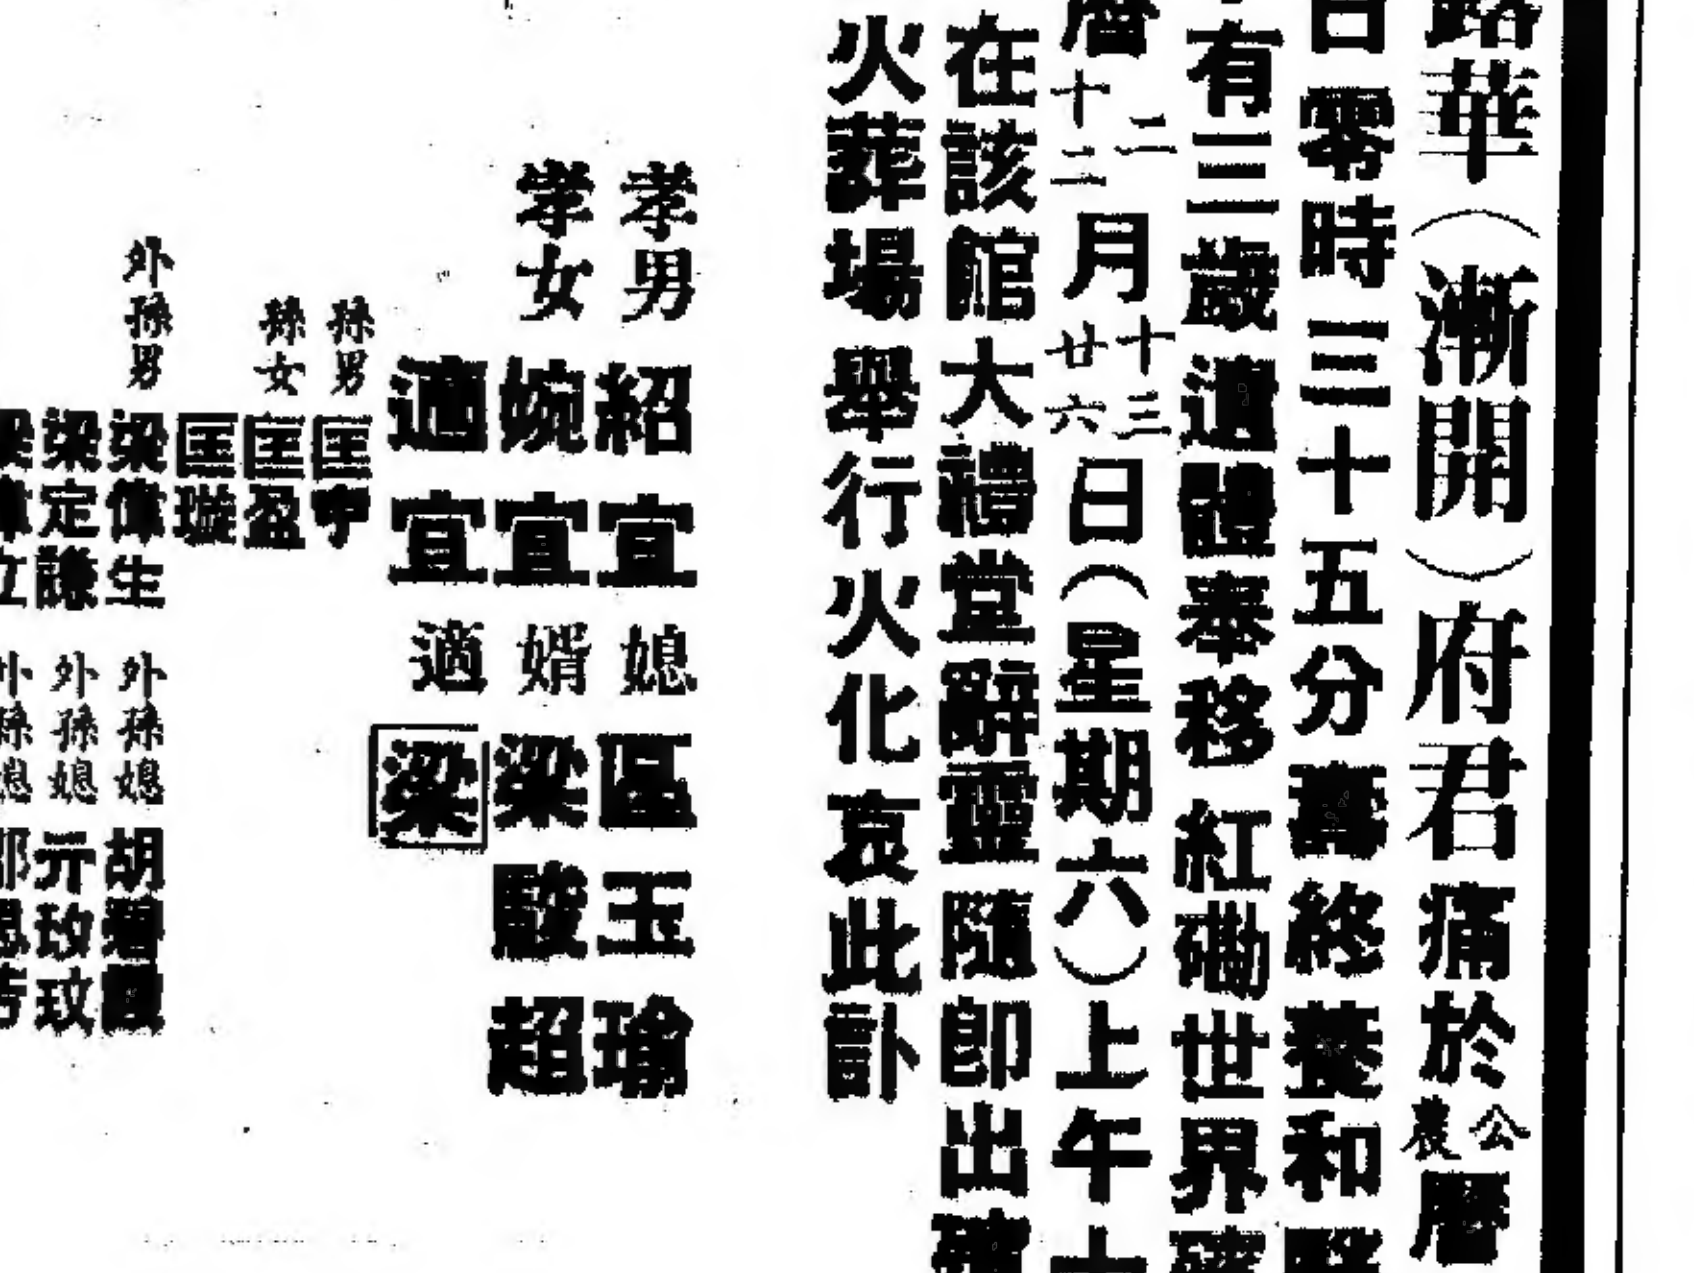 華（漸開）府君痛於公農曆
零時三十五分壽終養和醫
有三歲遺體奉移紅磡世界殯
曆二十二月十三廿六日（星期六）上午十
在該館大禮堂辭靈隨即出殯
火葬場舉行火化哀此訃
孝男 紹宣 媳 區玉瑜
孝女 婉宣 婿 梁駿超
適宣 適 梁
孫男 匡宁
孫女 匡盈
匡璇
外孫男 梁偉生 外孫媳 胡碧霞
梁定謙 外孫媳 亓玫玟